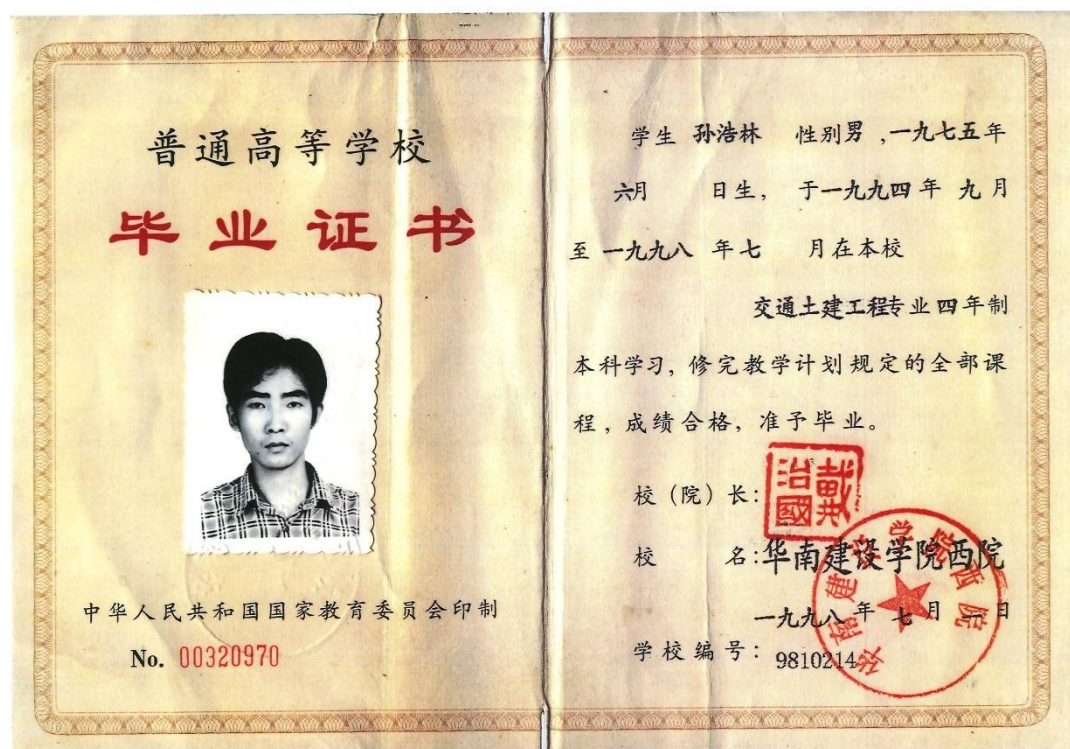 普通高等学校
毕业证书
中华人民共和国国家教育委员会印制
No. 00320970
学生 孙浩林 性别男,一九七五年
六月 日生, 于一九九四年 九月
至 一九九八 年七 月在本校
交通土建工程专业四年制
本科学习, 修完教学计划规定的全部课
程, 成绩合格, 准予毕业。
校(院)长:
戴治國
校 名:华南建设学院西院
一九九八年 七月 日
学校编号: 9810214
华南建设学院西院